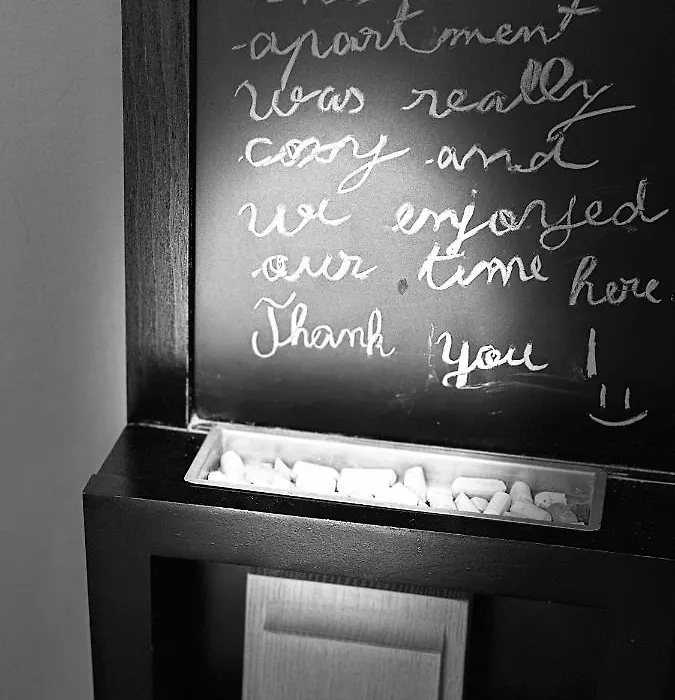 apartment
was really
cosy and
we enjoyed
our time here.
Thank you!